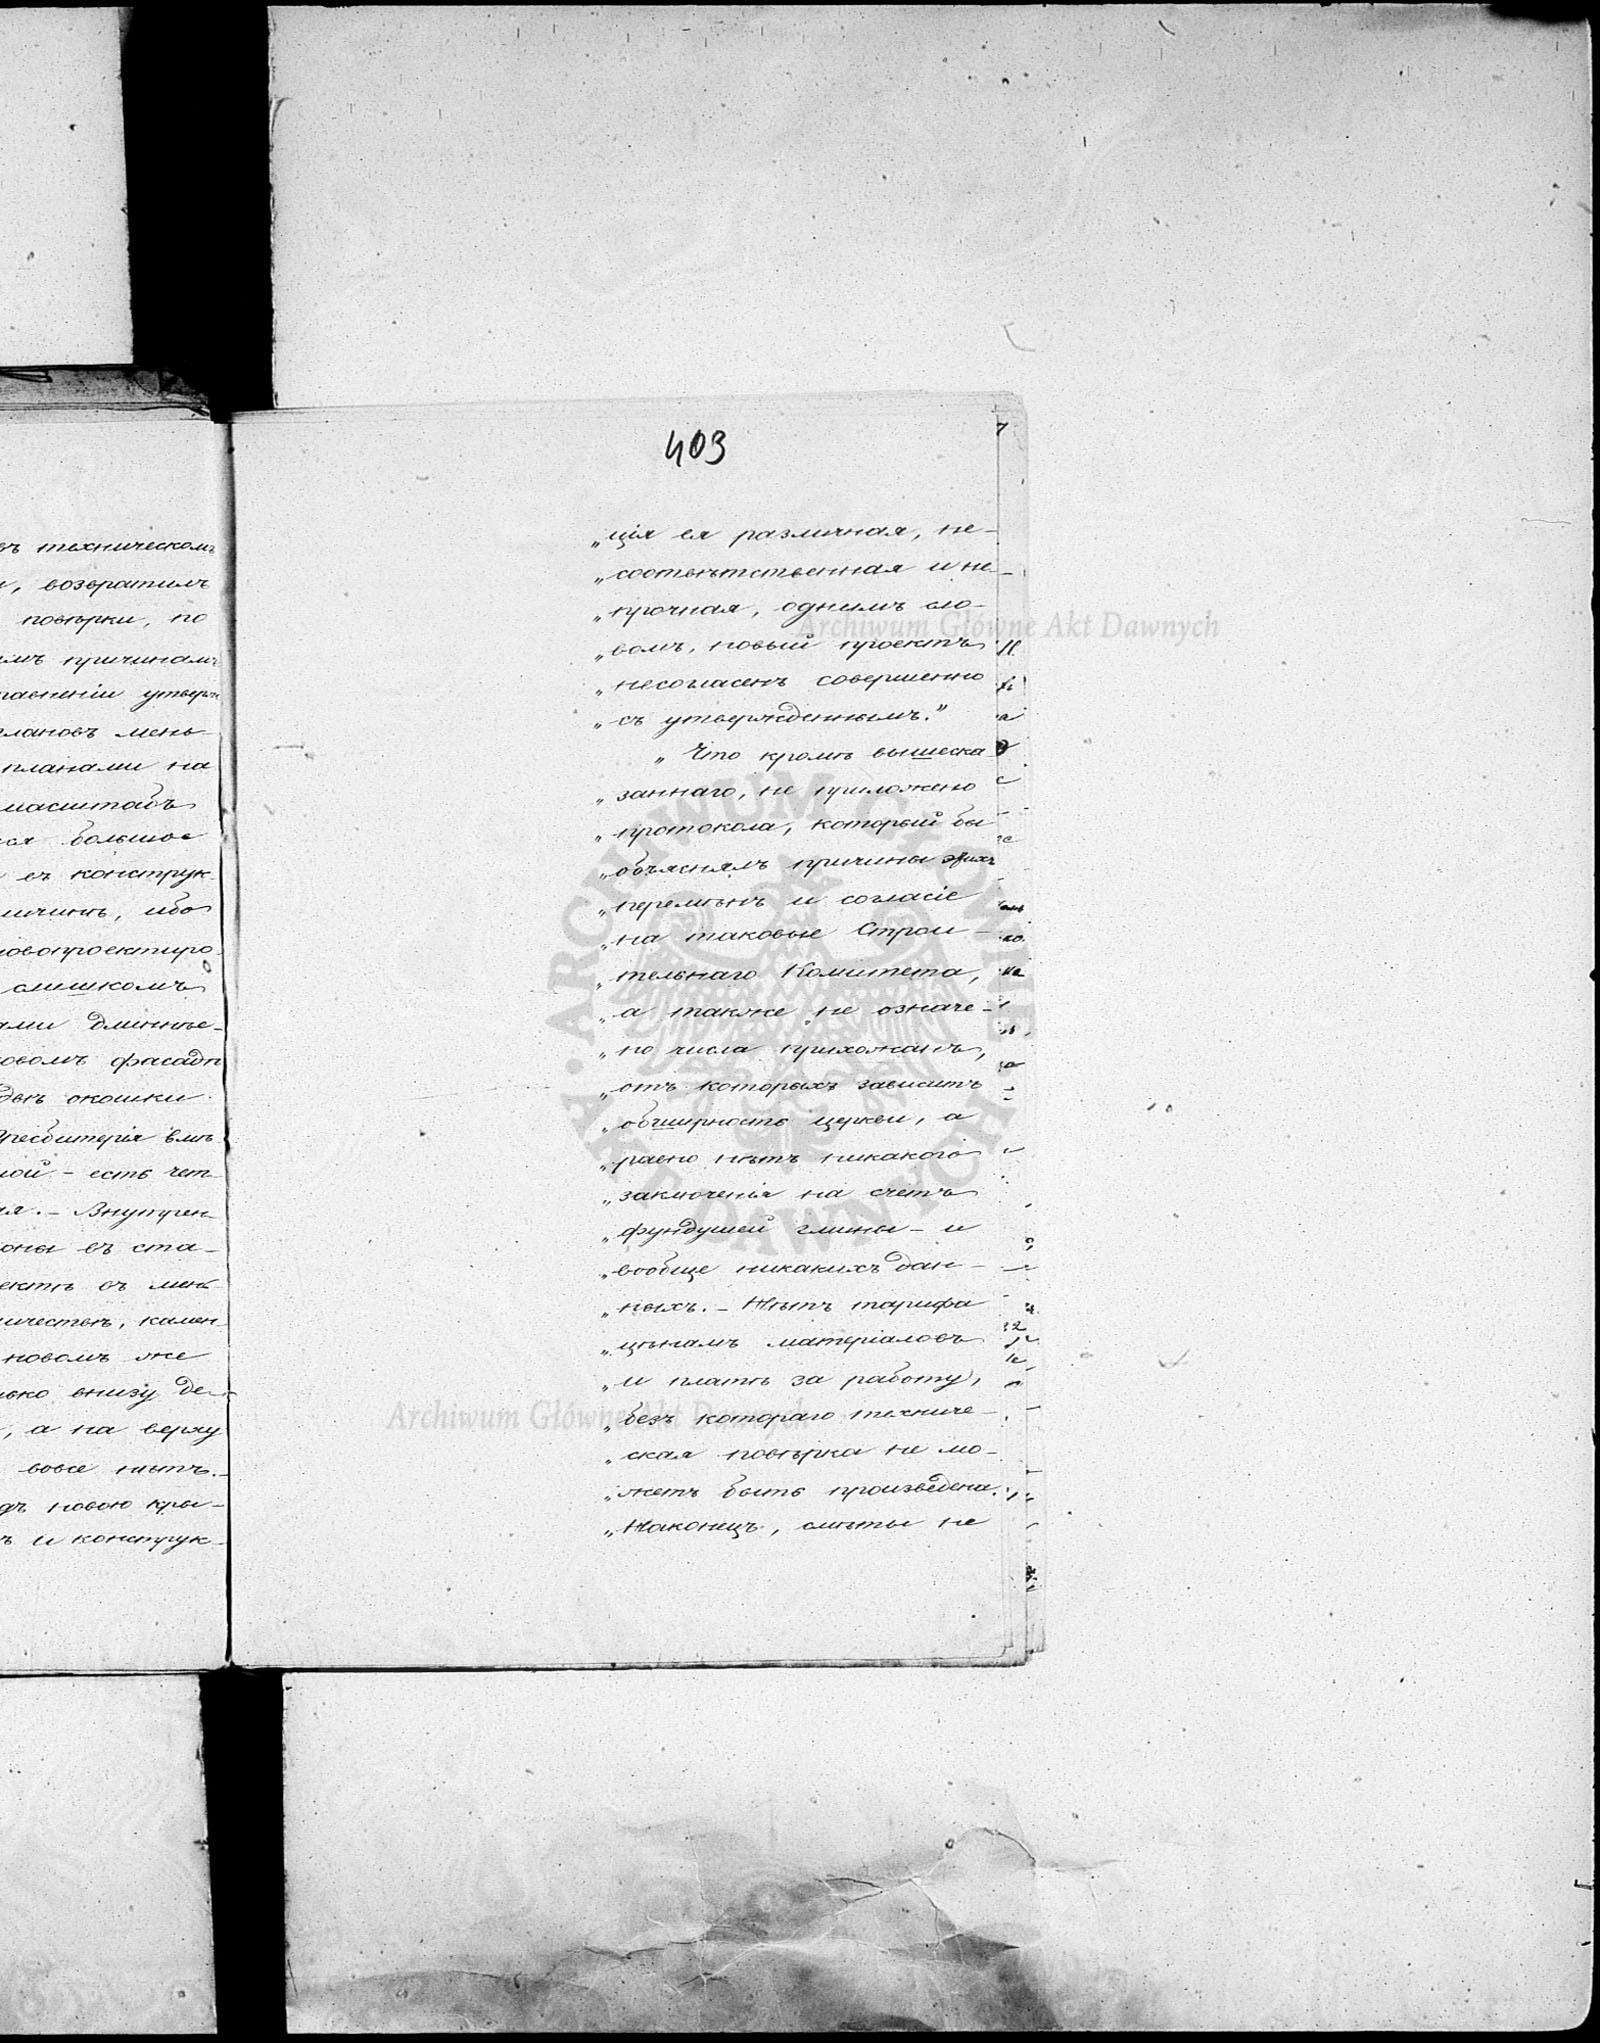 въ техническомъ
, возвратилъ
повѣрки, по
причинамъ
утверж
плановъ мень
планами на
масштабъ
ся большое
въ конструк-
ибо
новопроектиро-
слишкомъ
ами длинные-
новомъ фасадѣ
окошки
Пресбитерія вмѣ
ной - есть чет-
ія. - Внутрен-
оны въ ста-
ектѣ въ мень
ичествѣ, камен-
новомъ же
ько внизу де-
, а на верху
вовсе нѣтъ.-
дъ новою кры-
ъ и конструк-
403
„ція ея различная, не-
„соотвѣтственная и не-
„прочная, однимъ сло-
„вомъ, новый проектъ
„несогласенъ совершенно
„съ утвержденнымъ."
„Что кромѣ вышеска-
„заннаго, не приложено
„протокола, который бы
„объяснялъ причины этихъ
„перемѣнъ и согласіе
„на таковые Строи-
„тельнаго Комитета,
„а также не означе-
„но числа прихожанъ,
„отъ которыхъ зависитъ
„обширность церкви, а
„равно нѣтъ никакого
„заключенія на счетъ
„фундушей гмины - и
„вообще никакихъ дан-
„ныхъ. - Нѣтъ тарифа
„цѣнамъ матеріаловъ
„и платѣ за работу,
„безъ котораго техниче-
„ская повѣрка не мо-
„жетъ быть произведена.
„Наконецъ, смѣты не
Archiwum Główne Akt Dawnych
Archiwum Główne Akt Dawnych
ARCHIWUM GŁÓWNE AKT DAWNYCH